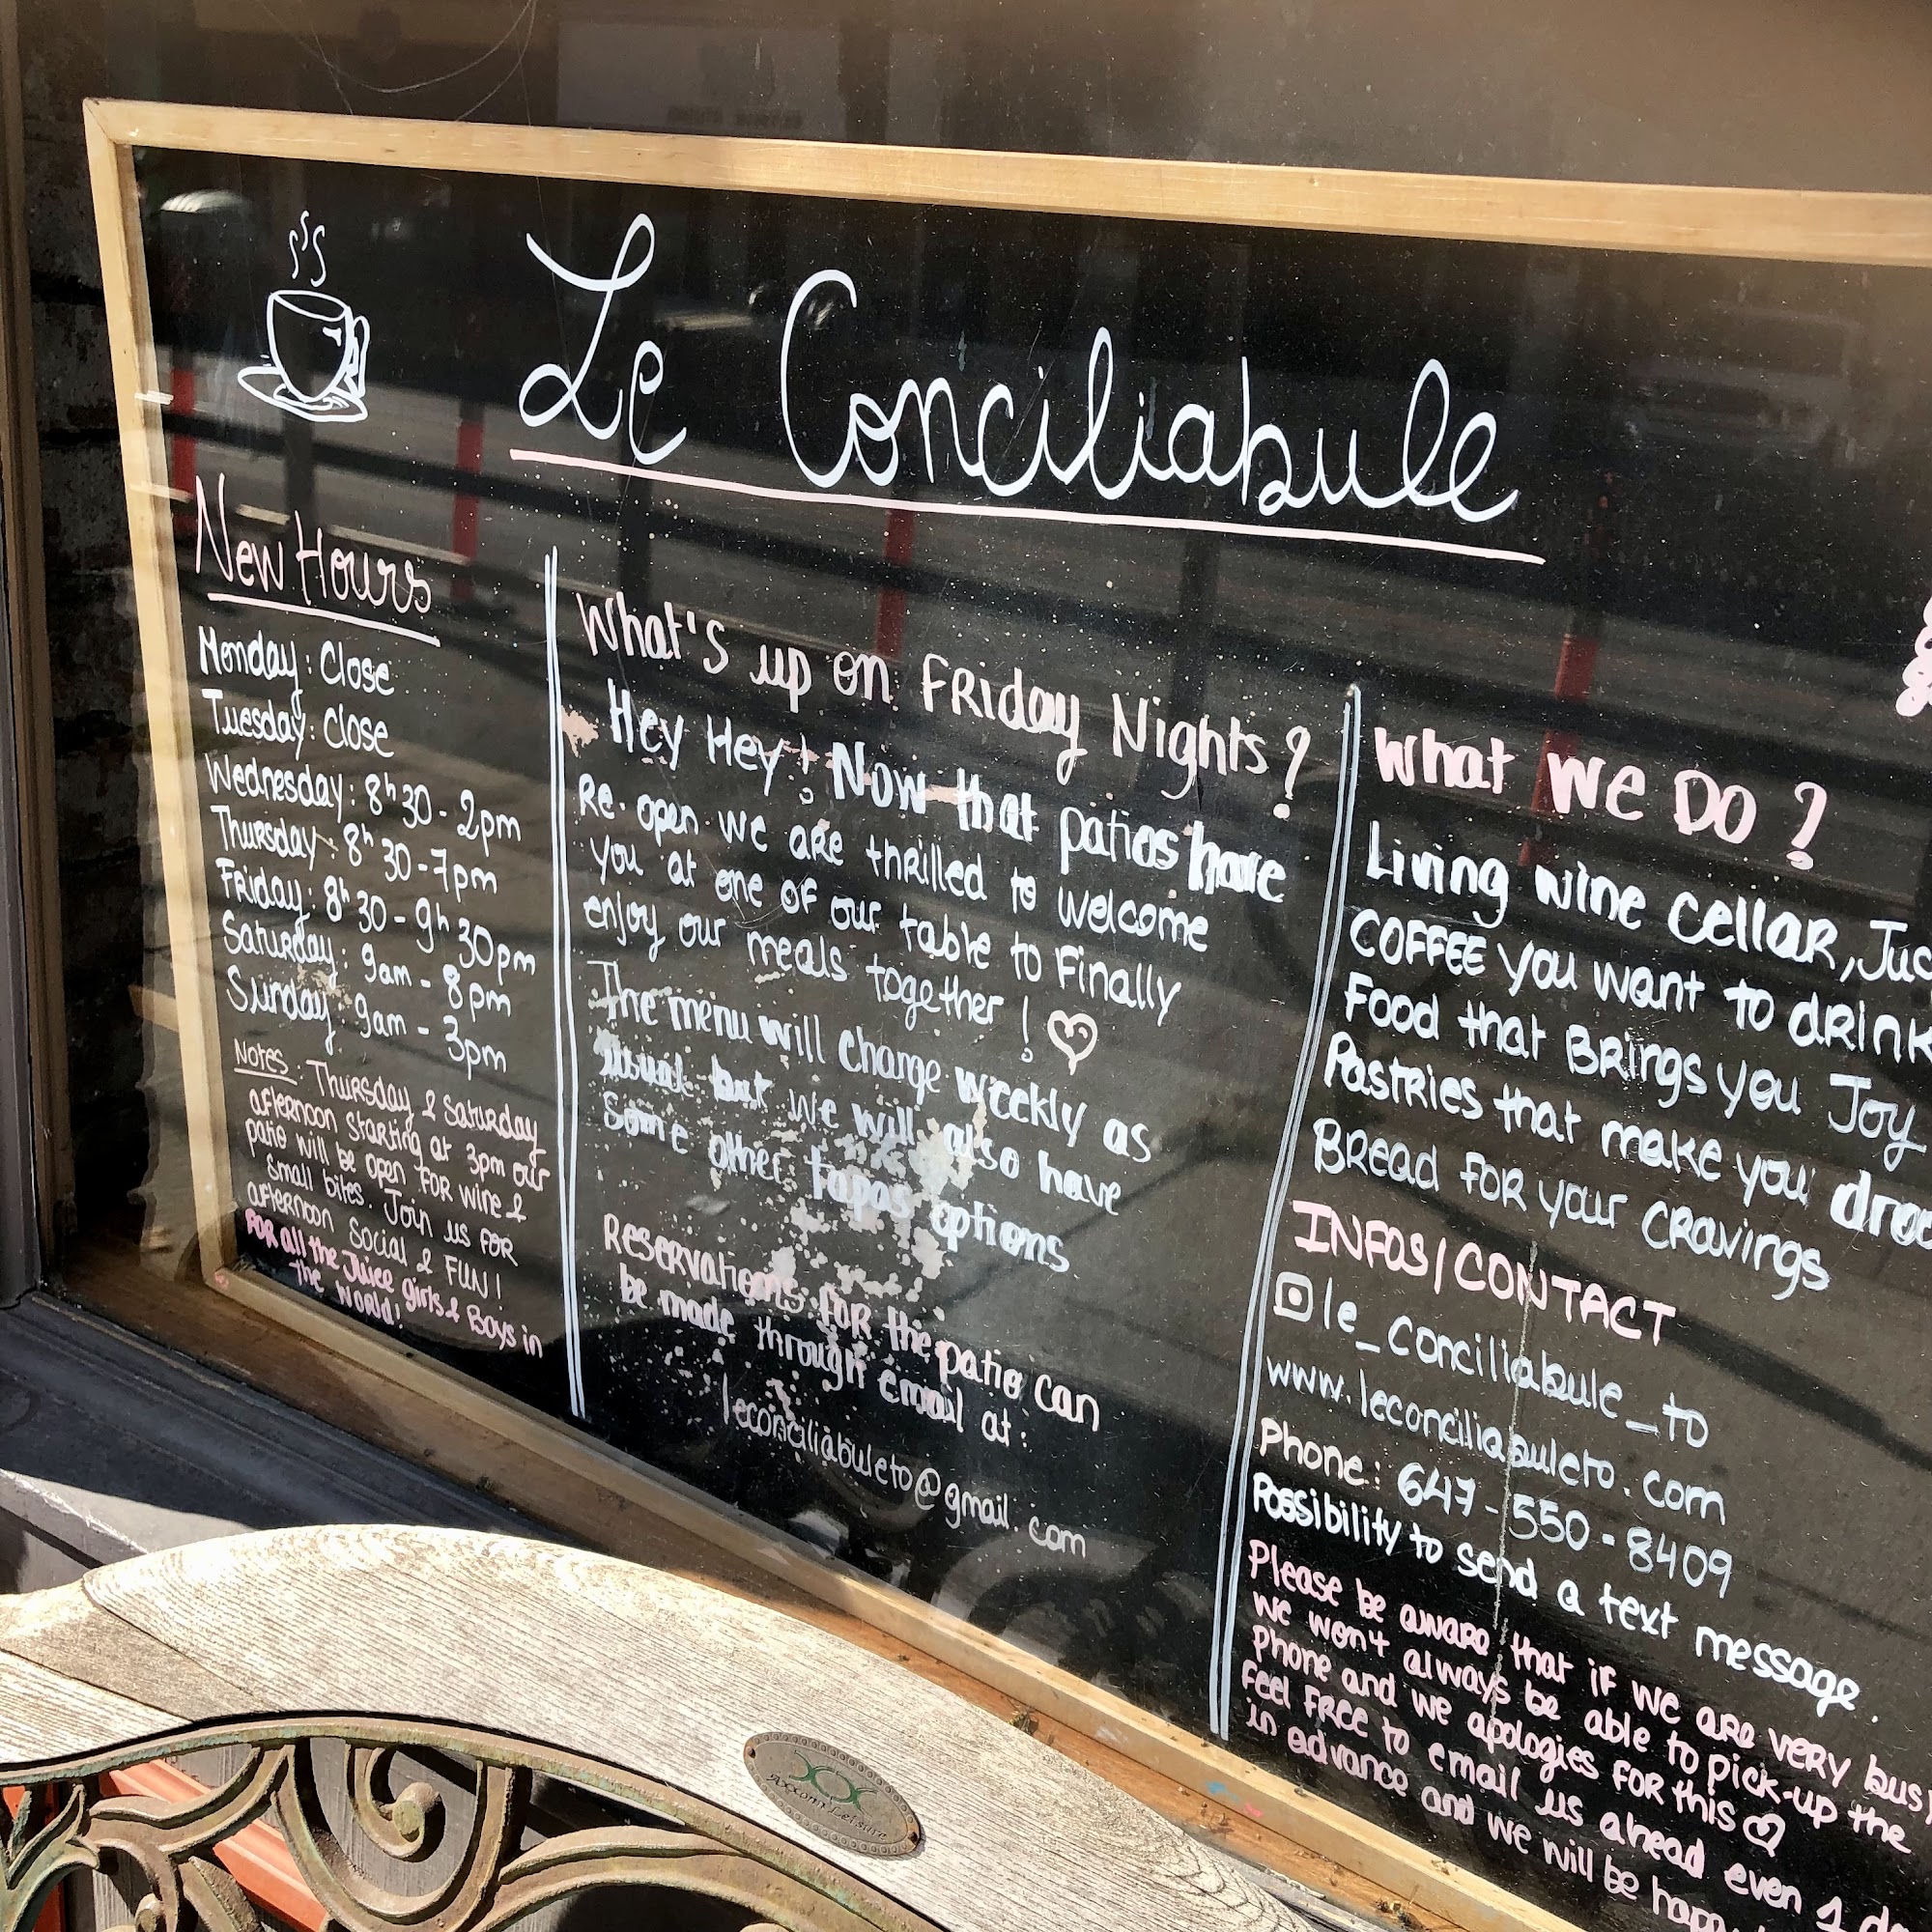 Le Conciliabule
New Hours
Monday: Close
Tuesday: Close
Wednesday: 8h30 - 2pm
Thursday: 8h30 - 7pm
Friday: 8h30 - 9h30pm
Saturday: 9am - 8pm
Sunday: 9am - 3pm
Notes: Thursday & Saturday
afternoon starting at 3pm our
patio will be open for wine &
small bites. Join us for
afternoon social & FUN!
For all the Juice girls & Boys in
the world!
What's up on Friday Nights?
Hey Hey! Now that patios have
Re-open we are thrilled to welcome
you at one of our table to Finally
enjoy our meals together!
The menu will change weekly as
usual but we will also have
some other tapas options
Reservations for the patio can
be made through email at:
leconciliabuleto@gmail.com
What we DO?
Living wine cellar,
COFFEE you want to drink
Food that Brings you Joy
Pastries that make you
Bread for your cravings
INFOS/CONTACT
le_conciliabule_to
www.leconciliabuleto.com
Phone: 647-550-8409
Possibility to send a text message.
Please be aware that if we are very
we won't always be able to pick-up the
phone and we apologies for this
Feel free to email us ahead even 1
in advance and we will be
Axxom Leisure